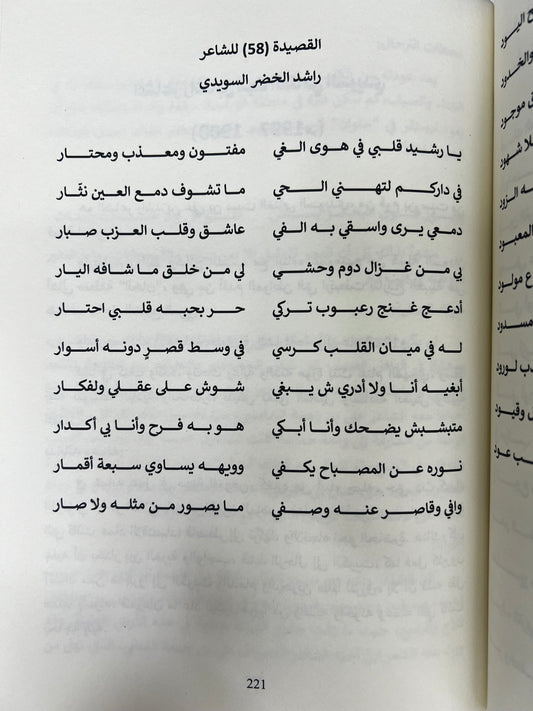 القصيدة (58) للشاعر
راشد الخضر السويدي
يا رشيد قلبي في هوى الغي مفتون ومعذب ومحتار
في داركم لتهني الحي ما تشوف دمع العين نثّار
دمعي يرى واسقي به الفي عاشق وقلب العزب صبار
بي من غزال دوم وحشي لي من خلق ما شافه اليار
أدعج غنج رعبوب تركي حر بحبه قلبي احتار
له في ميان القلب كرسي في وسط قصرٍ دونه أسوار
أبغيه أنا ولا أدري ش يبغي شوش على عقلي ولفكار
متبشبش يضحك وأنا أبكي هو به فرح وأنا بي أكدار
نوره عن المصباح يكفي وويهه يساوي سبعة أقمار
وافي وقاصر عنه وصفي ما يصور من مثله ولا صار
221
ح اليود
والخدود
موجود
لا شهود
ه الزود
المعبود
ع مولود
مسدود
لورود
وقيود
ب عود